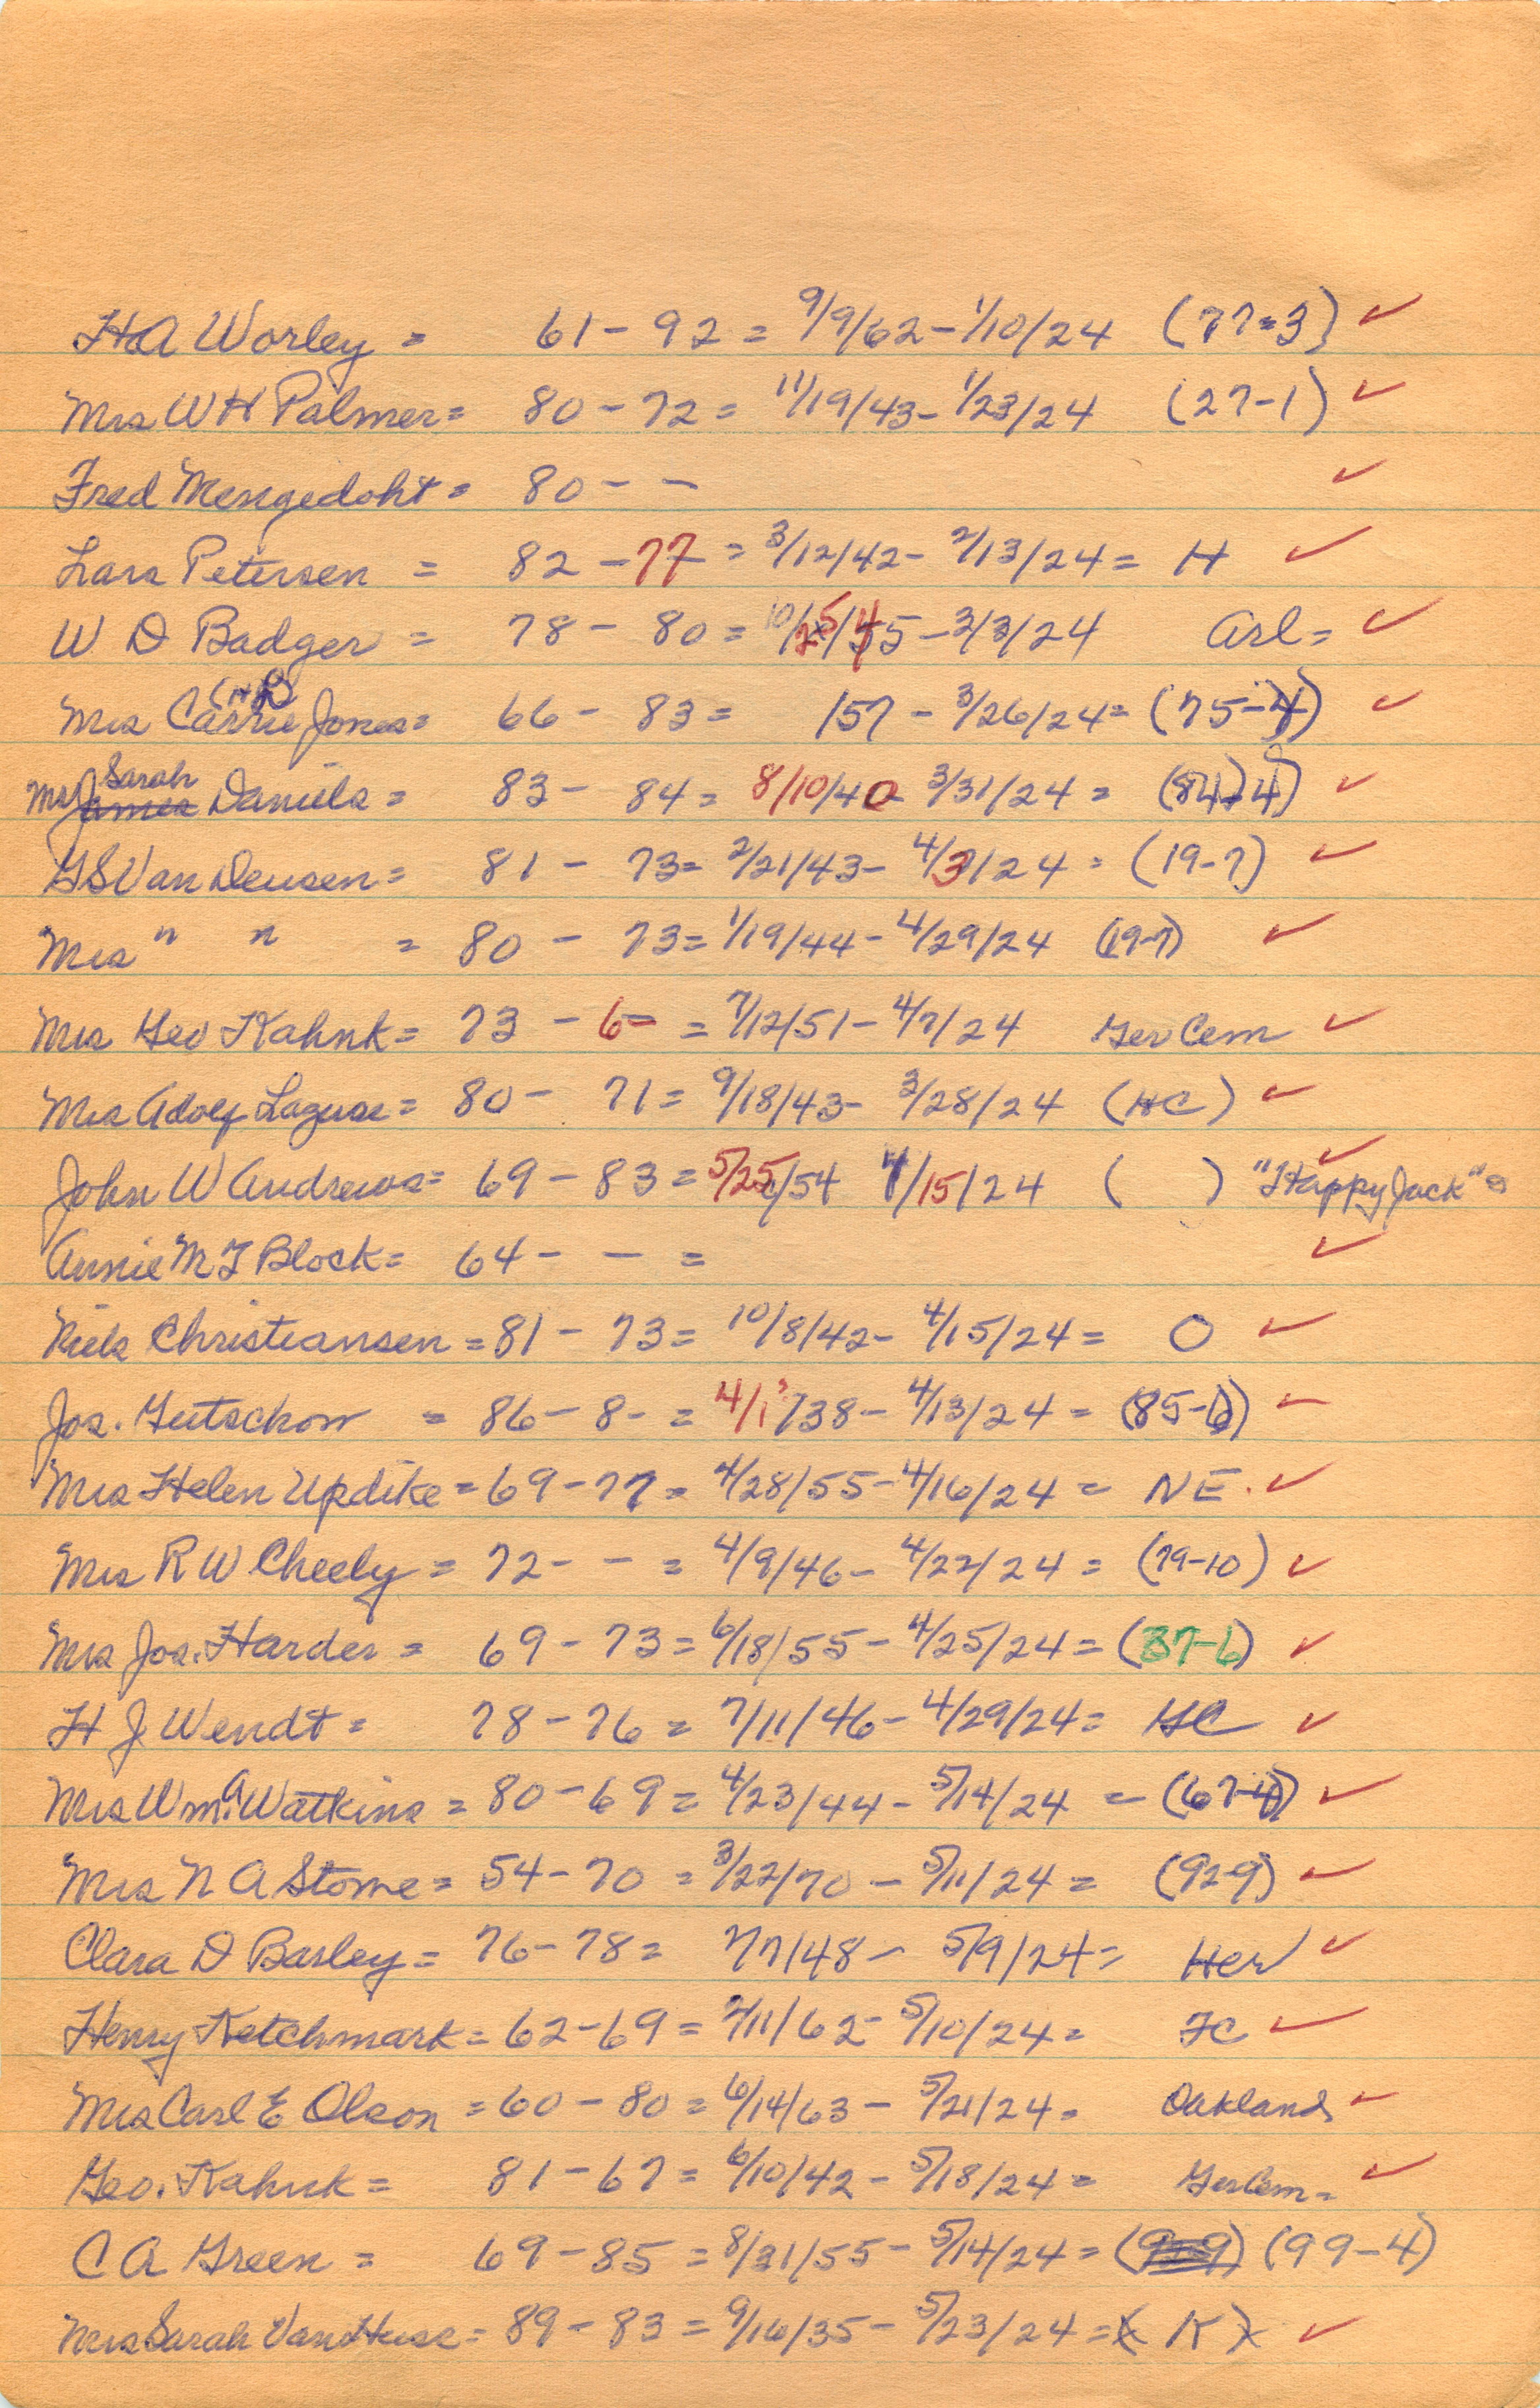 HA Worley = 61 - 92 = 9/9/62 - 1/10/24 (77=3) ✓
Mrs WH Palmer = 80 - 72 = 11/19/43 - 1/23/24 (27-1) ✓
Fred Mengedoht = 80 - - ✓
Lars Petersen = 82 - 77 = 3/12/42 - 2/13/24 = H ✓
W D Badger = 78 - 80 = 10/25/45 - 3/3/24 Arl = ✓
(HD)
Mrs Carrie Jones = 66 - 83 = /57 - 3/26/24 = (75-4) ✓
Sarah
Mrs James Daniels = 83 - 84 = 8/10/40 3/31/24 = (84-4) ✓
GS Van Deusen = 81 - 73 = 2/21/43 - 4/3/24 = (19-7) ✓
Mrs " " = 80 - 73 = 1/19/44 - 4/29/24 (19-7) ✓
Mrs Geo Kahnk = 73 - 6- = 7/12/51 - 4/7/24 Ger Cem ✓
Mrs Adolf = 80 - 71 = 9/18/43 - 3/28/24 (HC) ✓
John W Andrews = 69 - 83 = 5/25/54 4/15/24 ( ) "Happy Jack" = ✓
Annie M T Block = 64 - - = ✓
Niels Christiansen = 81 - 73 = 10/8/42 - 4/15/24 = O ✓
Jos. Gutschow = 86 - 8- = 4/1/38 - 4/13/24 = (85-6) ✓
Mrs Helen Updike = 69 - 77 = 4/28/55 - 4/16/24 = NE. ✓
Mrs R W Cheely = 72 - - = 4/9/46 - 4/22/24 = (79-10) ✓
Mrs Jos. Harder = 69 - 73 = 6/18/55 - 4/25/24 = (37-6) ✓
H J Wendt = 78 - 76 = 7/11/46 - 4/29/24 = GC ✓
Mrs Wm. A Watkins = 80 - 69 = 4/23/44 - 5/14/24 = (67-4) ✓
Mrs N A Stome = 54 - 70 = 3/22/70 - 5/11/24 = (92-9) ✓
Clara D Barley = 76 - 78 = 7/7/48 - 5/9/24 = Her ✓
Henry Ketchmark = 62 - 69 = 2/11/62 - 5/10/24 = FC ✓
Mrs Carl E Olson = 60 - 80 = 6/14/63 - 5/21/24 = Oakland ✓
Geo. Kahnk = 81 - 67 = 6/10/42 - 5/18/24 = Ger Cem = ✓
C A Green = 69 - 85 = 8/31/55 - 5/14/24 = (99-4)
Mrs Sarah = 89 - 83 = 9/16/35 - 5/23/24 = ( K ) ✓